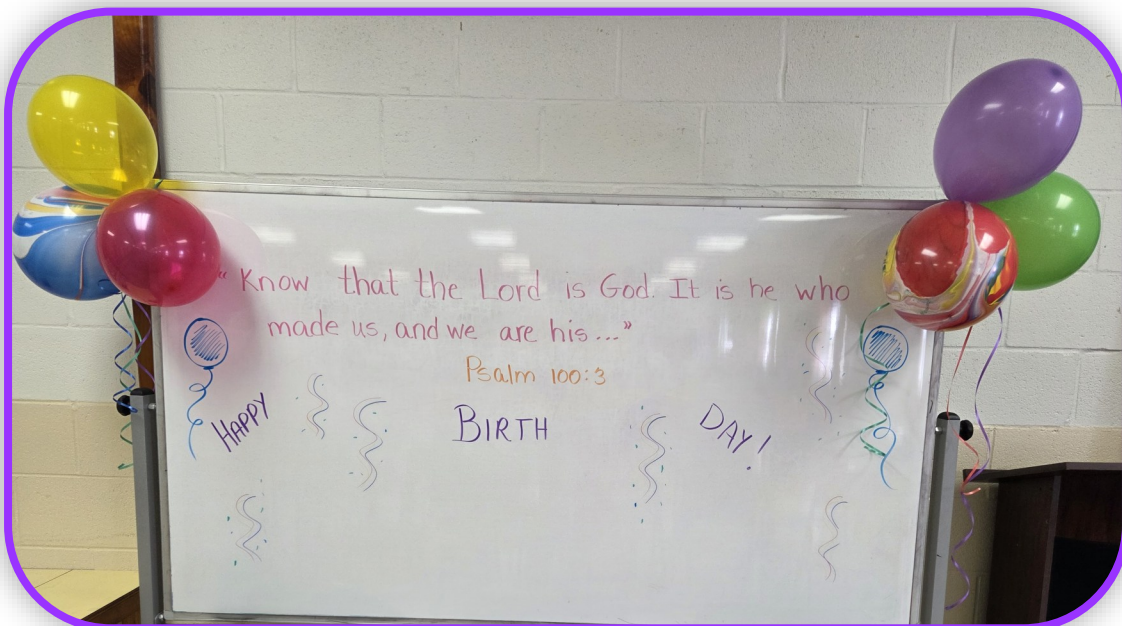 "Know that the Lord is God. It is he who
made us, and we are his..."
Psalm 100:3
HAPPY BIRTH DAY!